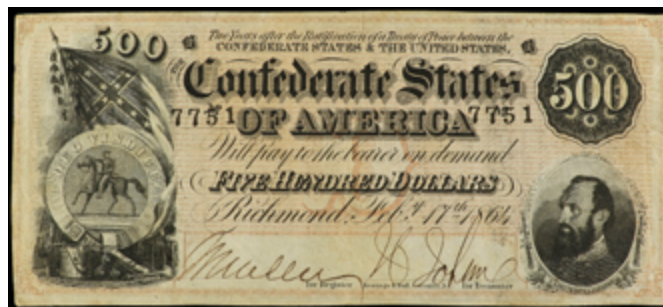 500
Two Years after the Ratification of a Treaty of Peace between the
CONFEDERATE STATES & THE UNITED STATES,
Confederate States
500
7751 OF AMERICA 7751
Will pay to the bearer on demand
FIVE HUNDRED DOLLARS
Richmond, Feby. 17th 1864
for Register
for Treasurer